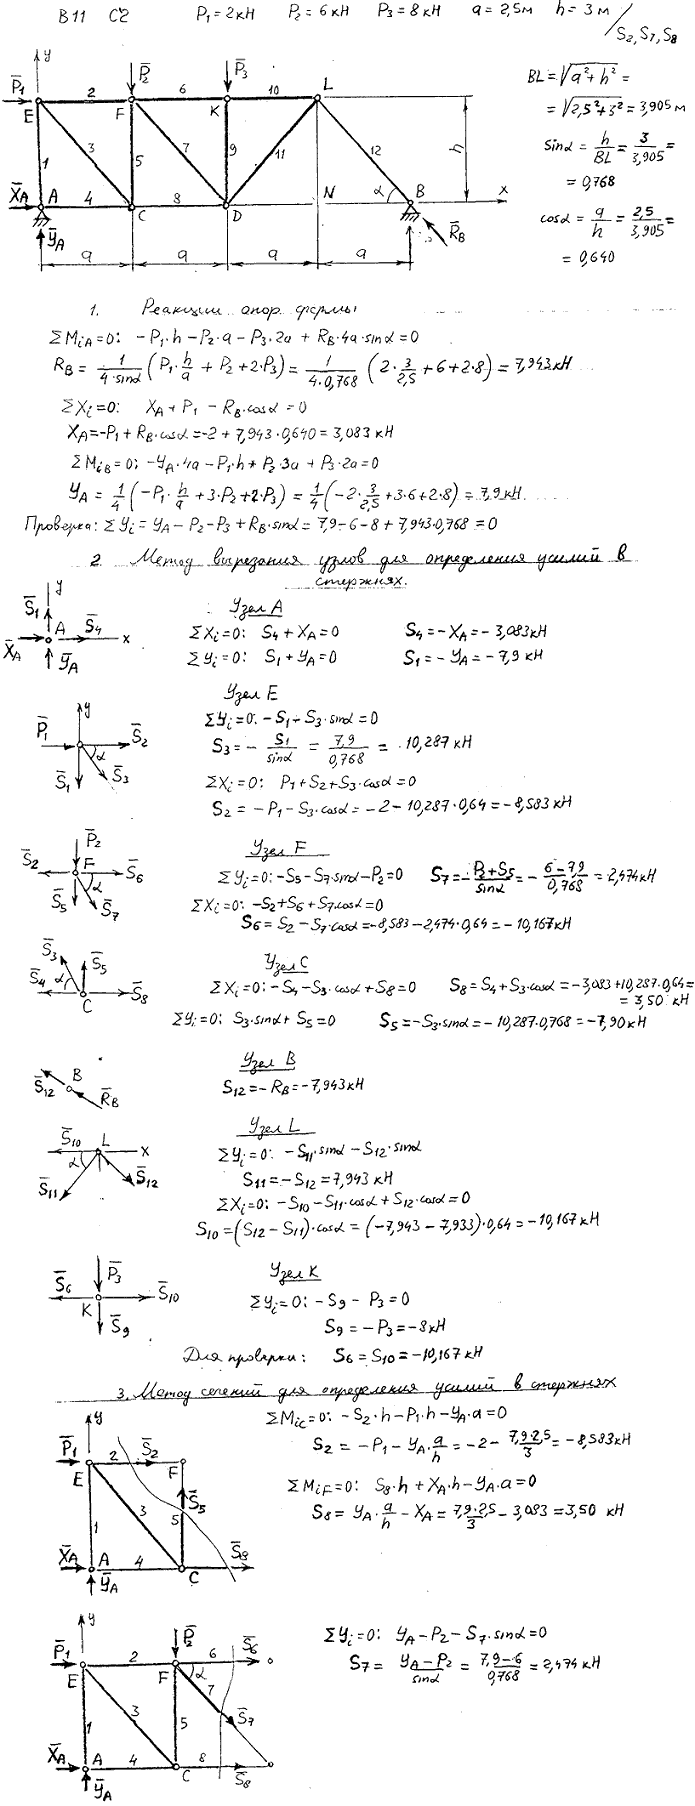 B11 C2 P₁=2кН P₂=6кН P₃=8кН a=2,5м h=3м / S₂, S₇, S₈
BL=√(a²+h²)=
=√(2,5²+3²)=3,905м
sinα=h/BL=3/3,905=
=0,768
cosα=a/h=2,5/3,905=
=0,640
y
P̄₁ P̄₂ P̄₃
2 6 10 L
E F K
1 3 5 7 9 11 12 h
X̄A A 4 C 8 D N α B x
ȲA R̄B
a a a a
1. Реакции опор фермы
ΣMiA=0: -P₁·h-P₂·a-P₃·2a+RB·4a·sinα=0
RB=1/(4·sinα)(P₁·h/a+P₂+2·P₃)=1/(4·0,768)(2·3/2,5+6+2·8)=7,943кН
ΣXi=0: XA+P₁-RB·cosα=0
XA=-P₁+RB·cosα=-2+7,943·0,640=3,083кН
ΣMiB=0: -YA·4a-P₁·h+P₂·3a+P₃·2a=0
YA=1/4(-P₁·h/a+3·P₂+2·P₃)=1/4(-2·3/2,5+3·6+2·8)=7,9кН
Проверка: ΣYi=YA-P₂-P₃+RB·sinα=7,9-6-8+7,943·0,768=0
2. Метод вырезания узлов для определения усилий в
стержнях.
y S̄₁ A S̄₄ x X̄A ȲA
Узел A
ΣXi=0: S₄+XA=0 S₄=-XA=-3,083кН
ΣYi=0: S₁+YA=0 S₁=-YA=-7,9кН
y P̄₁ S̄₂ α S̄₁ S̄₃
Узел E
ΣYi=0: -S₁-S₃·sinα=0
S₃=-S₁/sinα=7,9/0,768=10,287кН
ΣXi=0: P₁+S₂+S₃·cosα=0
S₂=-P₁-S₃·cosα=-2-10,287·0,64=-8,583кН
P̄₂ S̄₂ F S̄₆ α S̄₅ S̄₇
Узел F
ΣYi=0: -S₅-S₇·sinα-P₂=0 S₇=-(P₂+S₅)/sinα=-(6-7,9)/0,768=2,474кН
ΣXi=0: -S₂+S₆+S₇·cosα=0
S₆=S₂-S₇·cosα=-8,583-2,474·0,64=-10,167кН
S̄₃ S̄₅ S̄₄ α C S̄₈
Узел C
ΣXi=0: -S₄-S₃·cosα+S₈=0 S₈=S₄+S₃·cosα=-3,083+10,287·0,64=
=3,50 кН
ΣYi=0: S₃·sinα+S₅=0 S₅=-S₃·sinα=-10,287·0,768=-7,90кН
S̄₁₂ B R̄B
Узел B
S₁₂=-RB=-7,943кН
S̄₁₀ L x α S̄₁₁ S̄₁₂
Узел L
ΣYi=0: -S₁₁·sinα-S₁₂·sinα
S₁₁=-S₁₂=7,943 кН
ΣXi=0: -S₁₀-S₁₁·cosα+S₁₂·cosα=0
S₁₀=(S₁₂-S₁₁)·cosα=(-7,943-7,933)·0,64=-10,167кН
P̄₃ S̄₆ K S̄₁₀ S̄₉
Узел K
ΣYi=0: -S₉-P₃=0
S₉=-P₃=-8кН
Для проверки: S₆=S₁₀=-10,167кН
3. Метод сечений для определения усилий в стержнях
ΣMiC=0: -S₂·h-P₁·h-YA·a=0
S₂=-P₁-YA·a/h=-2-7,9·2,5/3=-8,583кН
ΣMiF=0: S₈·h+XA·h-YA·a=0
S₈=YA·a/h-XA=7,9·2,5/3-3,083=3,50 кН
y P̄₁ 2 S̄₂ E F
1 3 5 S̄₅
X̄A A 4 C S̄₈
ȲA
ΣYi=0: YA-P₂-S₇·sinα=0
S₇=(YA-P₂)/sinα=(7,9-6)/0,768=2,474кН
y P̄₁ 2 P̄₂ 6 S̄₆
E F α
1 3 5 7 S̄₇
X̄A A 4 C 8 S̄₈
ȲA